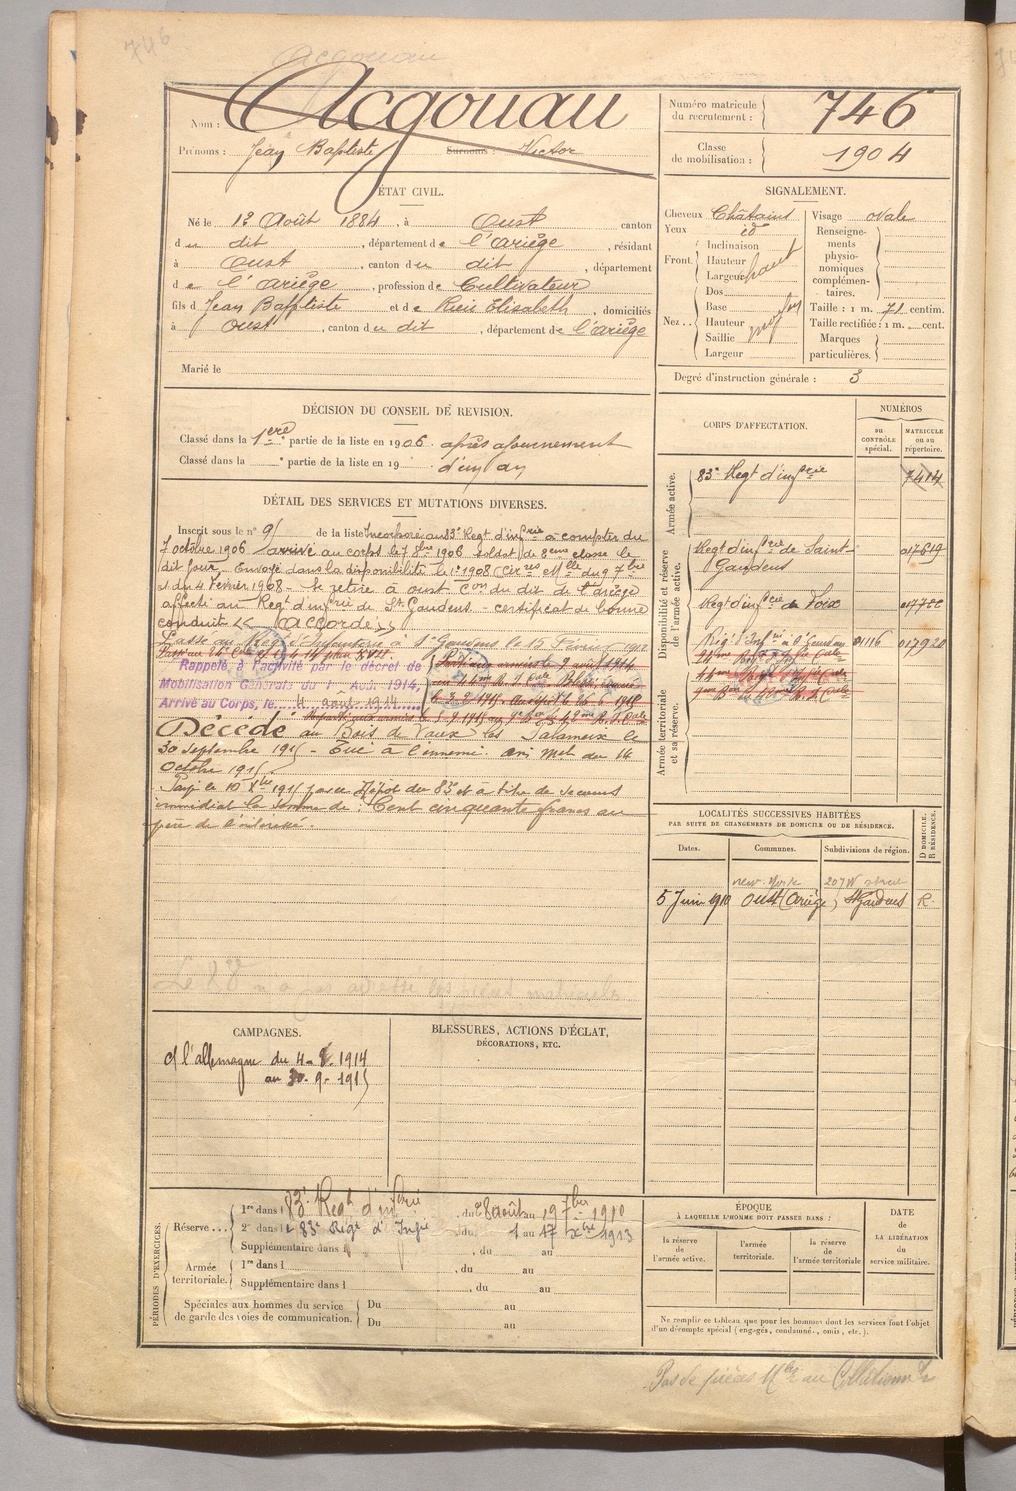 746
Acgouau
Nom : Acgouau
Prénoms : Jean Baptiste Surnoms : Victor
Numéro matricule du recrutement : 746
Classe de mobilisation : 1904
ÉTAT CIVIL.
Né le 12 Août 1884, à Oust canton
du dit, département de l'Ariège, résidant
à Oust, canton du dit, département
de l'Ariège, profession de Cultivateur
fils d Jean Baptiste et de Rieu Elisabeth, domiciliés
à Oust, canton du dit, département de l'ariège
Marié le
SIGNALEMENT.
Cheveux Châtains
Yeux id
Front. Inclinaison
Hauteur haut
Largeur
Nez.. Dos
Base
Hauteur
Saillie
Largeur
Visage ovale
Renseignements physionomiques complémentaires.
Taille : 1 m. 71 centim.
Taille rectifiée : 1 m. cent.
Marques particulières.
Degré d'instruction générale : 3
DÉCISION DU CONSEIL DE REVISION.
Classé dans la 1ere partie de la liste en 1906. après ajournement
Classé dans la e partie de la liste en 19 d'un an
CORPS D'AFFECTATION.
NUMÉROS
au CONTRÔLE spécial.
MATRICULE ou au répertoire.
Armée active.
83e Regt d'infrie 7414
Disponibilité et réserve de l'armée active.
Regt d'infrie de Saint-Gaudens 017619
Regt d'infrie de Foix
Régt d'Infrie St Gaudens 01116 017920
Armée territoriale et sa réserve.
DÉTAIL DES SERVICES ET MUTATIONS DIVERSES.
Inscrit sous le n° 91 de la liste Incorporé au 83e Regt d'infrie à compter du
7 octobre 1906 arrivé au corps le 7 8bre 1906 soldat de 2eme classe le
dit jour. Envoyé dans la disponibilité le 1908 Circres Mlle du 9 7bre
et du 4 Février 1908 - Se retire à Oust Con du dit de l'Ariège
affecté au Regt d'infrie de St Gaudens - certificat de bonne
conduite « accordé »
Passé au Regt d'Infanterie à St Gaudens le 15 Février 1912
Rappelé à l'activité par le décret de
Mobilisation Générale du 1er Août 1914,
Arrivé au Corps, le 4 août 1914
Décédé au Bois de Vaux les Palameix le
30 septembre 1915 - Tué à l'ennemi. avis Mel du 14
octobre 1915
Payé le 10 Xbre 1915 par le Dépôt du 83e et à titre de secours
immédiat la somme de : Cent cinquante francs au
père de l'intéressé.
LOCALITÉS SUCCESSIVES HABITÉES
PAR SUITE DE CHANGEMENTS DE DOMICILE OU DE RÉSIDENCE.
Dates. Communes. Subdivisions de région. D DOMICILE. R RÉSIDENCE.
new-York 207 W street
5 Juin 1910 Oust (Ariège) St Gaudens R.
CAMPAGNES.
Ct l'allemagne du 4-8-1914
au 30-9-1915
BLESSURES, ACTIONS D'ÉCLAT,
DÉCORATIONS, ETC.
PÉRIODES D'EXERCICES.
Réserve... 1re dans l 83e Regt d'infrie, du 28 août au 19 7bre 1910
2e dans le 83e Régt d'Infie, du 1 au 17 Xbre 1913
Supplémentaire dans l , du au
Armée territoriale. 1re dans l , du au
Supplémentaire dans l , du au
Spéciales aux hommes du service de garde des voies de communication. Du au
Du au
ÉPOQUE
À LAQUELLE L'HOMME DOIT PASSER DANS :
la réserve de l'armée active.
l'armée territoriale.
la réserve de l'armée territoriale
DATE de LA LIBÉRATION du service militaire.
Ne remplir ce tableau que pour les hommes dont les services font l'objet
d'un décompte spécial (engagés, condamnés, omis, etc.).
Pas de pièces Mles au